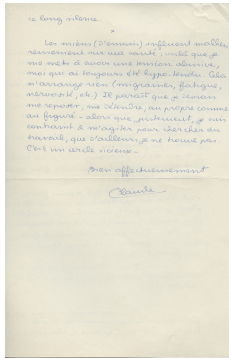 ce long silence.
*
Les miens (d'ennuis) influent malheu-
reusement sur ma santé : voilà que je
me mets à avoir une tension abusive,
moi qui ai toujours été hypo-tendu. Cela
n'arrange rien (migraines, fatigue,
nervosité, etc.) Il paraît que je devrais
me reposer, me détendre, au propre comme
au figuré - alors que, justement, je suis
contraint de m'agiter pour chercher du
travail, que d'ailleurs je ne trouve pas.
C'est un cercle vicieux.
Bien affectueusement
Claude